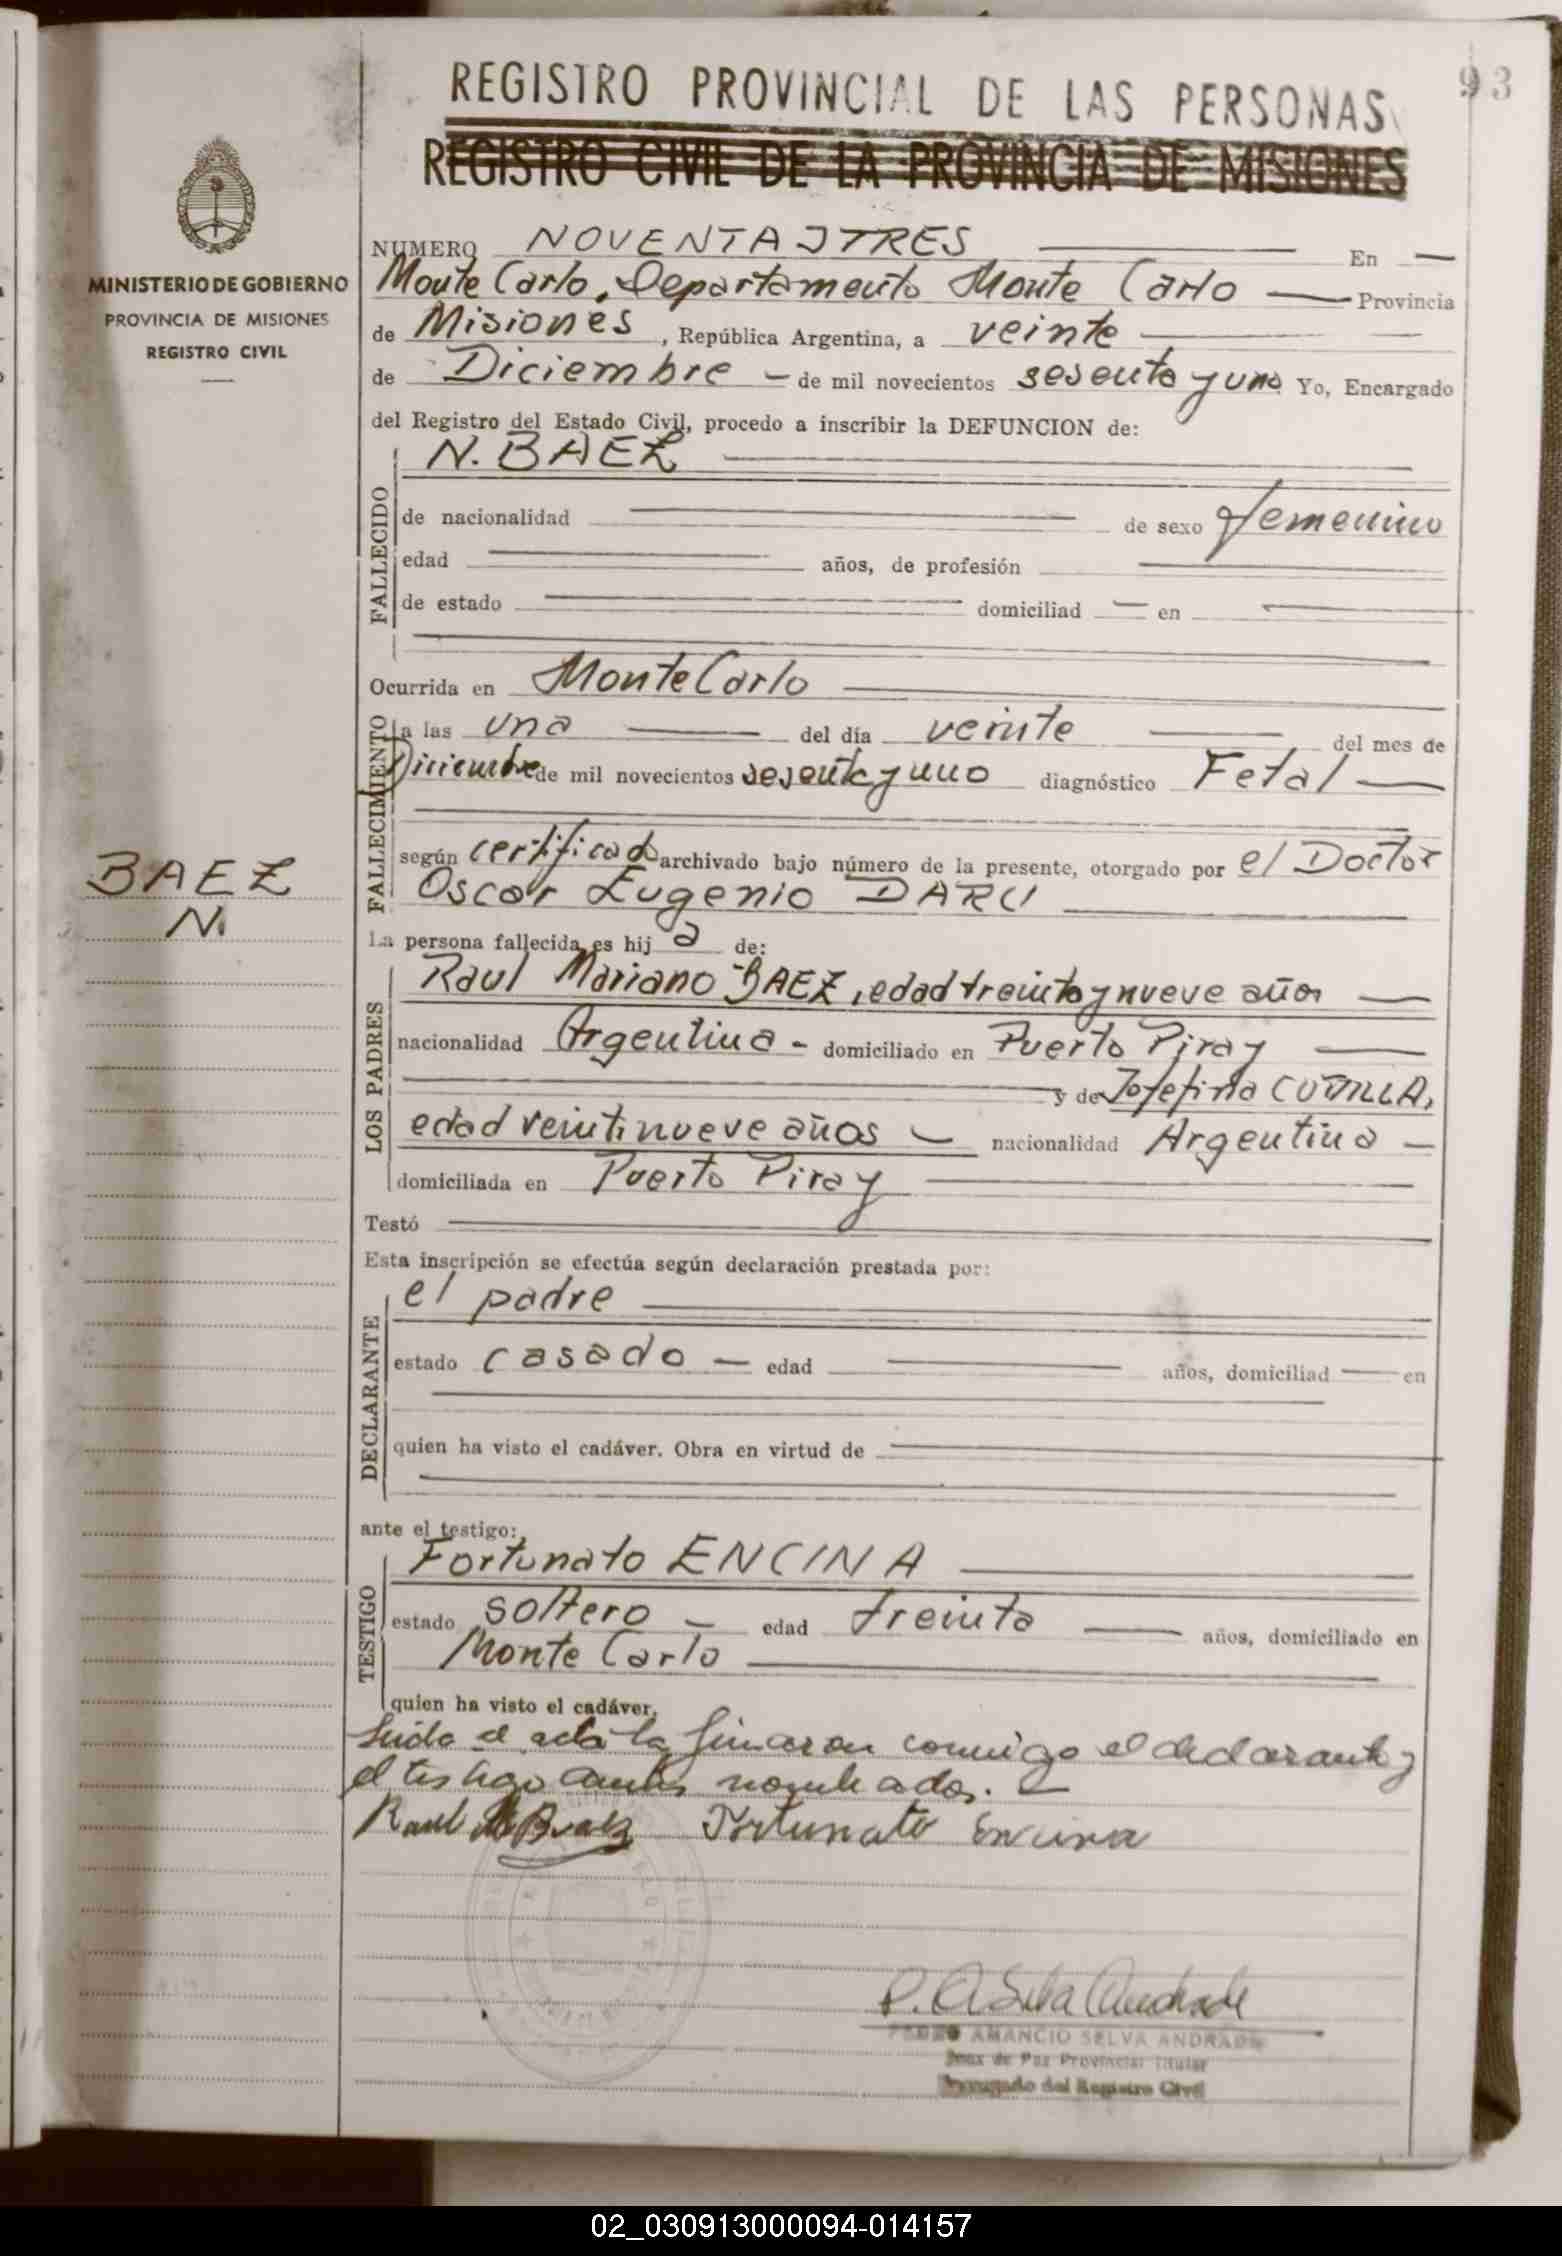 93
REGISTRO PROVINCIAL DE LAS PERSONAS
REGISTRO CIVIL DE LA PROVINCIA DE MISIONES
MINISTERIO DE GOBIERNO
PROVINCIA DE MISIONES
REGISTRO CIVIL
NUMERO NOVENTA I TRES En
Monte Carlo, Departamento Monte Carlo Provincia
de Misiones, República Argentina, a veinte
de Diciembre de mil novecientos sesenta y uno Yo, Encargado
del Registro del Estado Civil, procedo a inscribir la DEFUNCION de:
FALLECIDO
N. BAEZ
de nacionalidad de sexo femenino
edad años, de profesión
de estado domiciliad en
Ocurrida en Monte Carlo
FALLECIMIENTO
a las una del día veinte del mes de
Diciembre de mil novecientos sesenta y uno diagnóstico Fetal
según certificado archivado bajo número de la presente, otorgado por el Doctor
Oscar Eugenio DARU
BAEZ
N.
La persona fallecida es hij a de:
LOS PADRES
Raul Mariano BAEZ, edad treinta y nueve años
nacionalidad Argentina - domiciliado en Puerto Piray
y de Josefina
edad veintinueve años nacionalidad Argentina
domiciliada en Puerto Piray
Testó
Esta inscripción se efectúa según declaración prestada por:
DECLARANTE
el padre
estado casado edad años, domiciliad en
quien ha visto el cadáver. Obra en virtud de
ante el testigo:
TESTIGO
Fortunato ENCINA
estado soltero edad treinta años, domiciliado en
Monte Carlo
quien ha visto el cadáver.
Leida el acta la firmaron conmigo el declarante y
el testigo antes nombrados.
Raul M Baez Fortunato Encina
P. A Selva Andrade
PEDRO AMANCIO SELVA ANDRADE
Juez de Paz Provincial Titular
Encargado del Registro Civil
02_030913000094-014157